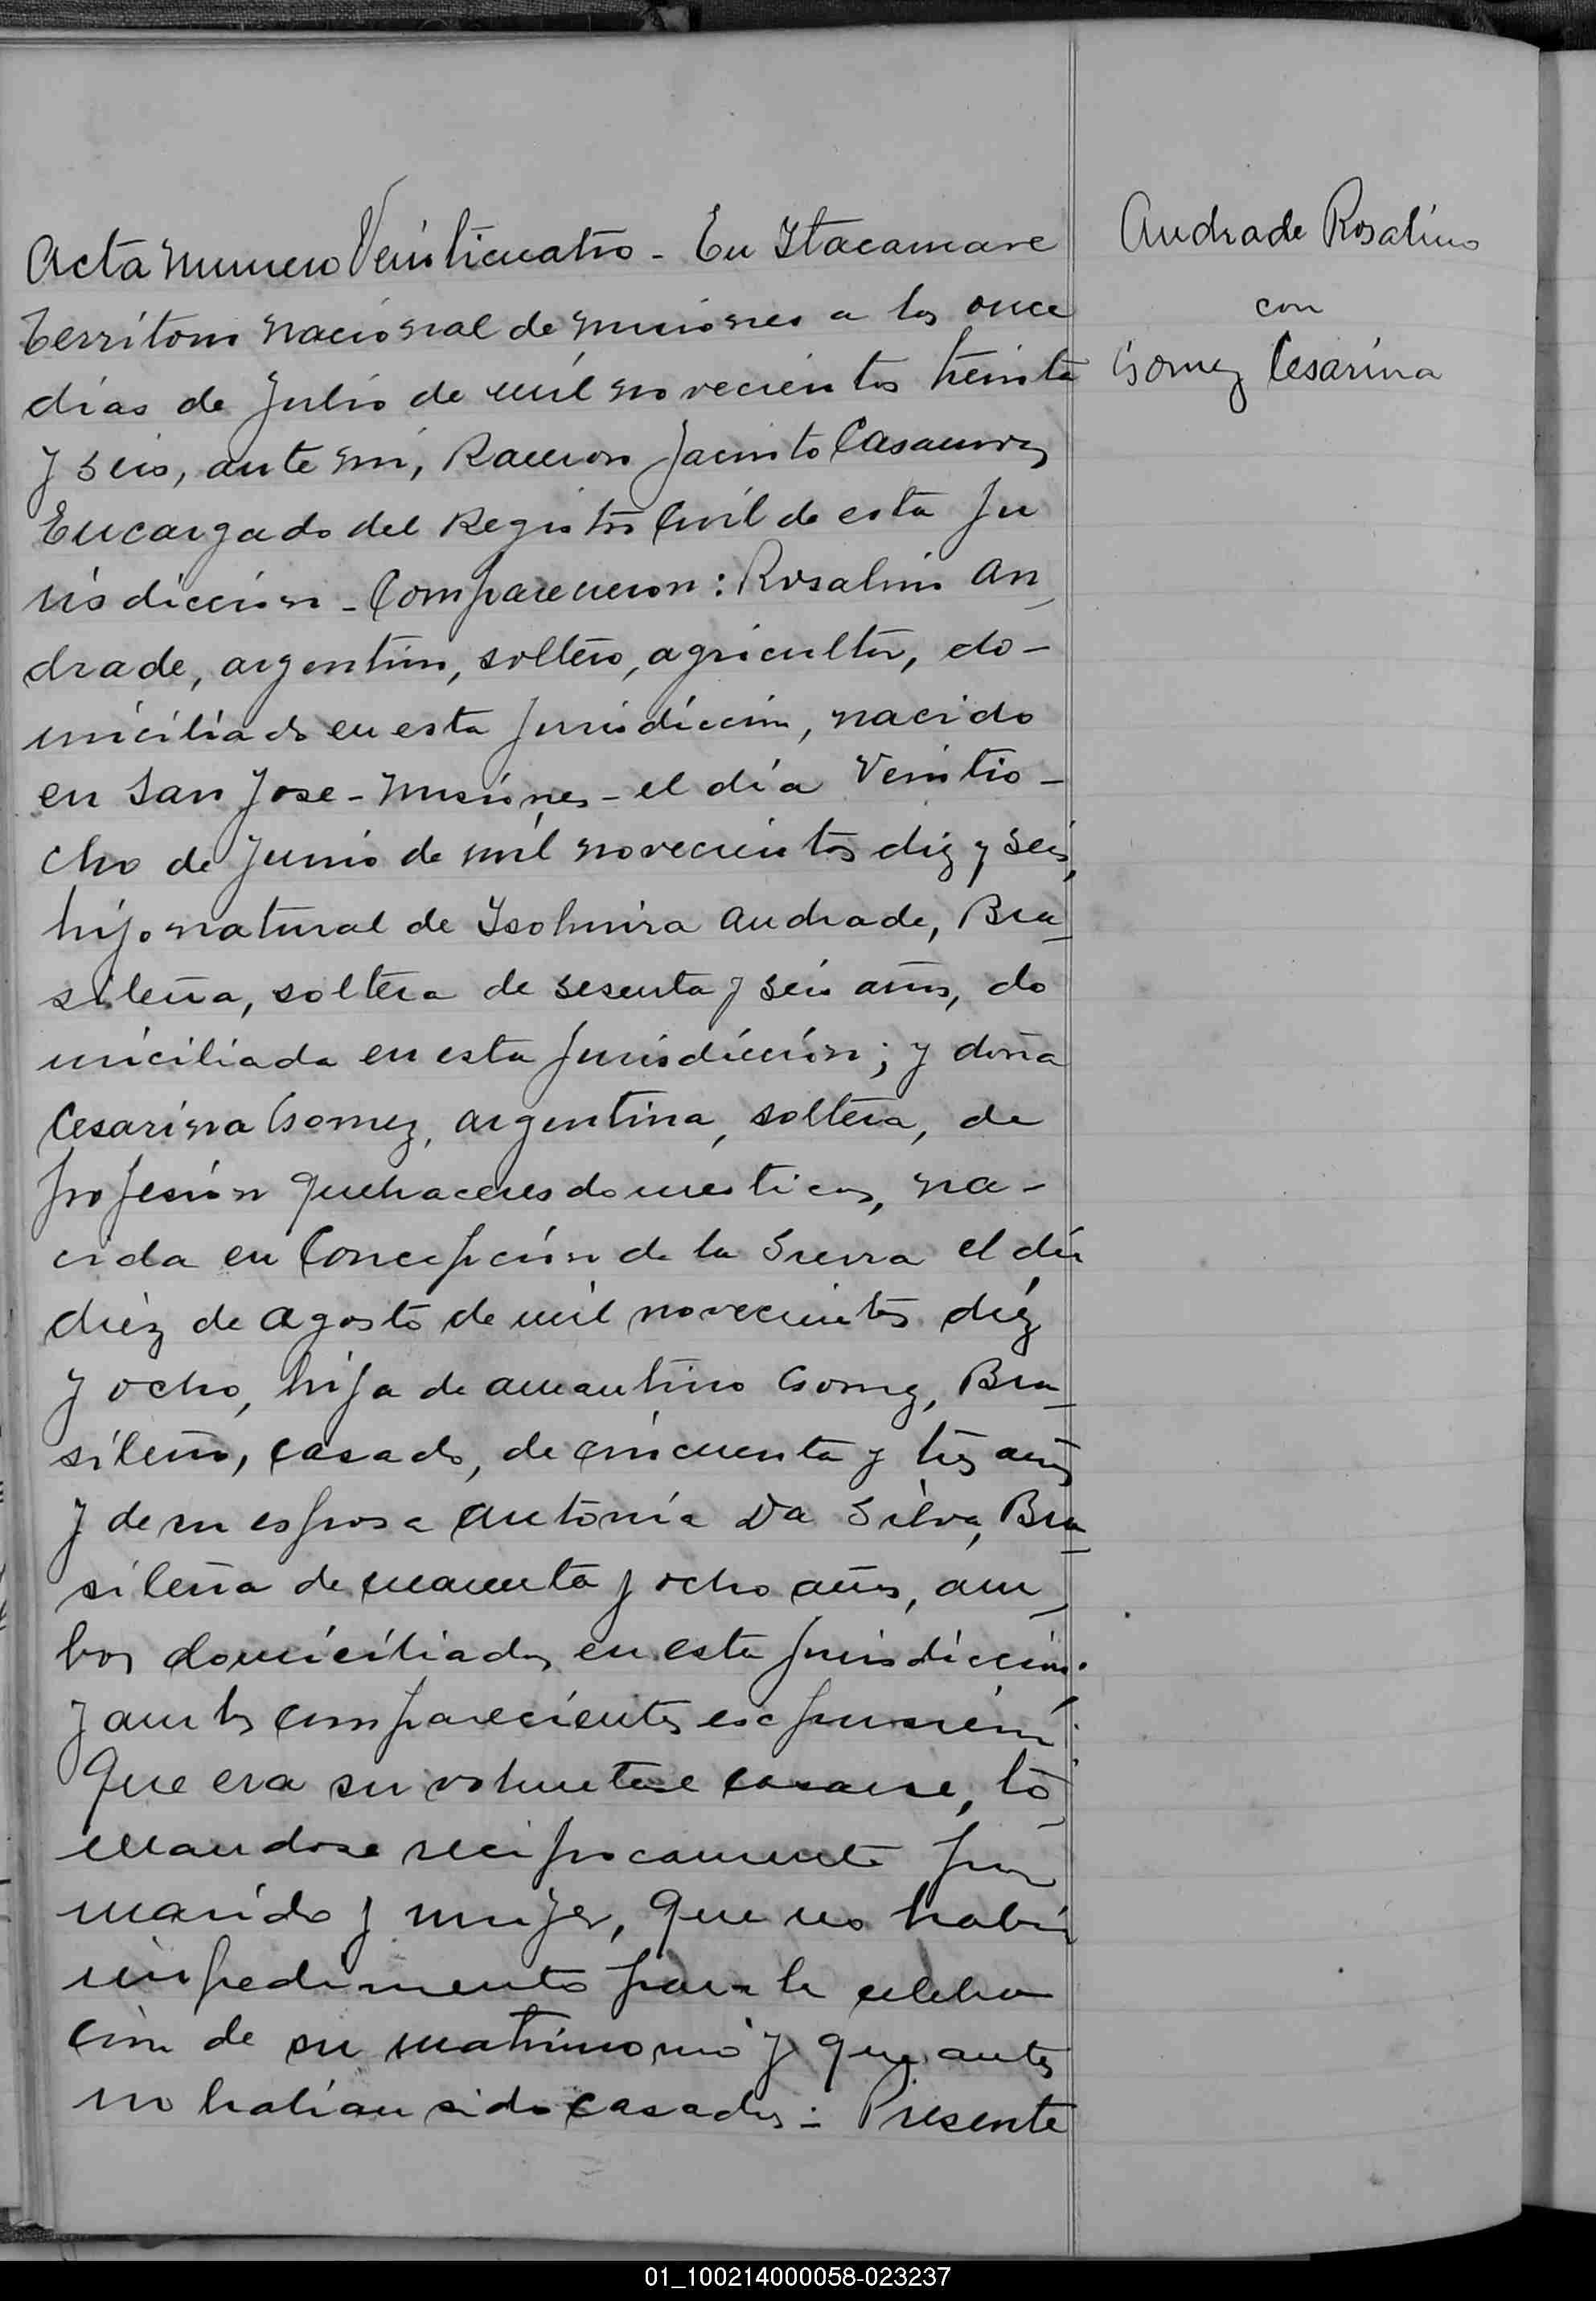 Acta Numero Veinticuatro - En Itacaruare
Territorio Nacional de Misiones a los once
dias de Julio de mil novecientos treinta
y seis, ante mi, Ramon Jacinto
Encargado del Registro Civil de esta Ju
risdiccion - Comparecieron: Rosalino An
drade, argentino, soltero, agricultor, do-
miciliado en esta Jurisdiccion, nacido
en San Jose - Misiones - el día Veintio-
cho de Junio de mil novecientos diez y seis,
hijo natural de Isolmira Andrade, Bra
sileña, soltera de sesenta y seis años, do
miciliada en esta Jurisdicción; y doña
Cesarina Gomez, argentina, soltera, de
profesión quehaceres domesticos, na-
cida en Concepción de la Sierra el día
diez de Agosto de mil novecientos diez
y ocho, hija de Amantino Gomez, Bra
sileño, casado, de cincuenta y tres años
y de su esposa Antonia Da Silva, Bra
sileña de cuarenta y ocho años, am
bos domiciliados en esta Jurisdiccion.
y ambos comparecientes
Que era su voluntad casarse, to
mandose reciprocamente por
marido y mujer, que no había
impedimento para la celebra
cion de su matrimonio y que antes
no habian sido casados: Presente
Andrade Rosalino
con
Gomez Cesarina
01_100214000058-023237